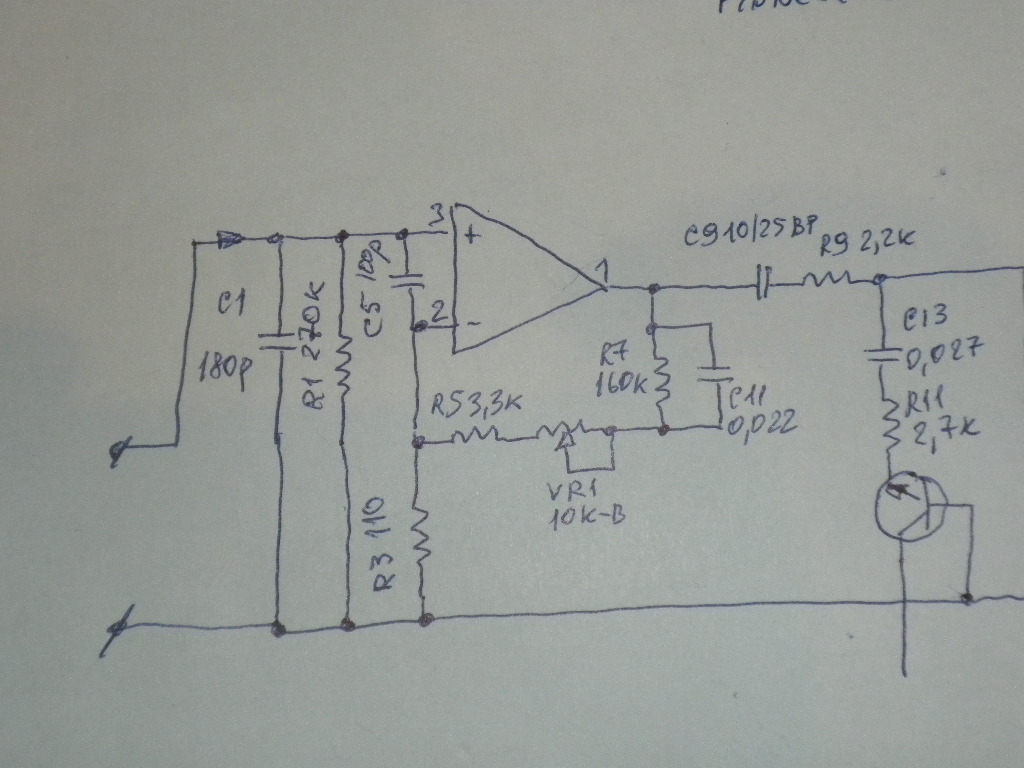 3
+
C9 10/25 BP
R9 2,2K
C1
180p
R1 270K
C5 100p
2
-
1
R7
160K
C11
0,022
C13
0,027
R11
2,7K
R5 3,3K
VR1
10K-B
R3 110